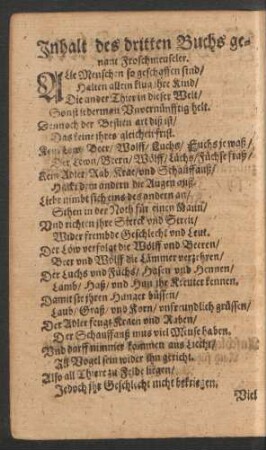 Inhalt des dritten Buchs ge-
nant Froschmeuseler.
Alle Menschen so geschaffen sind/
Halten allein klug ihre Kind/
Die ander Thier in dieser Welt/
Sonst jederman Unvernünfftig helt.
Dennoch der Bestien art diß ist/
Das keine ihres gleichen frist.
Kein Löw/ Beer/ Wolff/ Luchs/ Fuchs je waß/
Der Löwn/ Beern/ Wölff/ Lüchs/ Füchse fraß/
Kein Adler/ Rab/ Krae/ und Schauffauß/
Hackt dem andern die Augen auß.
Liebt nimbt sich eins des andern an/
Stehen in der Noth für einen Mann/
Und richten ihre Streck und Streit/
Wider frembde Geschlecht und Leut.
Der Löw verfolgt die Wölff und Beeren/
Beer und Wölff die Lämmer verzehren/
Der Luchs und Füchs/ Hasen und Hennen/
Lamb/ Haß/ und Hun ihr Kreuter kennen.
Damit sie ihren Hunger büssen/
Laub/ Graß/ und Korn/ unfreundlich grüssen/
Der Adler fengt Kraen und Raben/
Der Schauffauß mus viel Meuse haben.
Und dorff nimmer kommen ans Liecht/
All Vogel sein wider ihn gericht.
Also all Thiere zu Felde liegen/
Jedoch ihr Geschlecht nicht bekriegen.
Viel